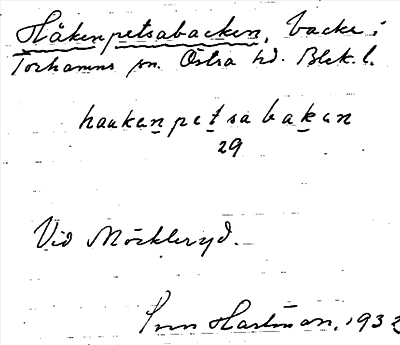 Håkenpetsabacken, backe i
Torhamns sn. Östra hd. Blek. l.
haakenpetsabaken
29
Vid Möckleryd.
Hartman, 1932